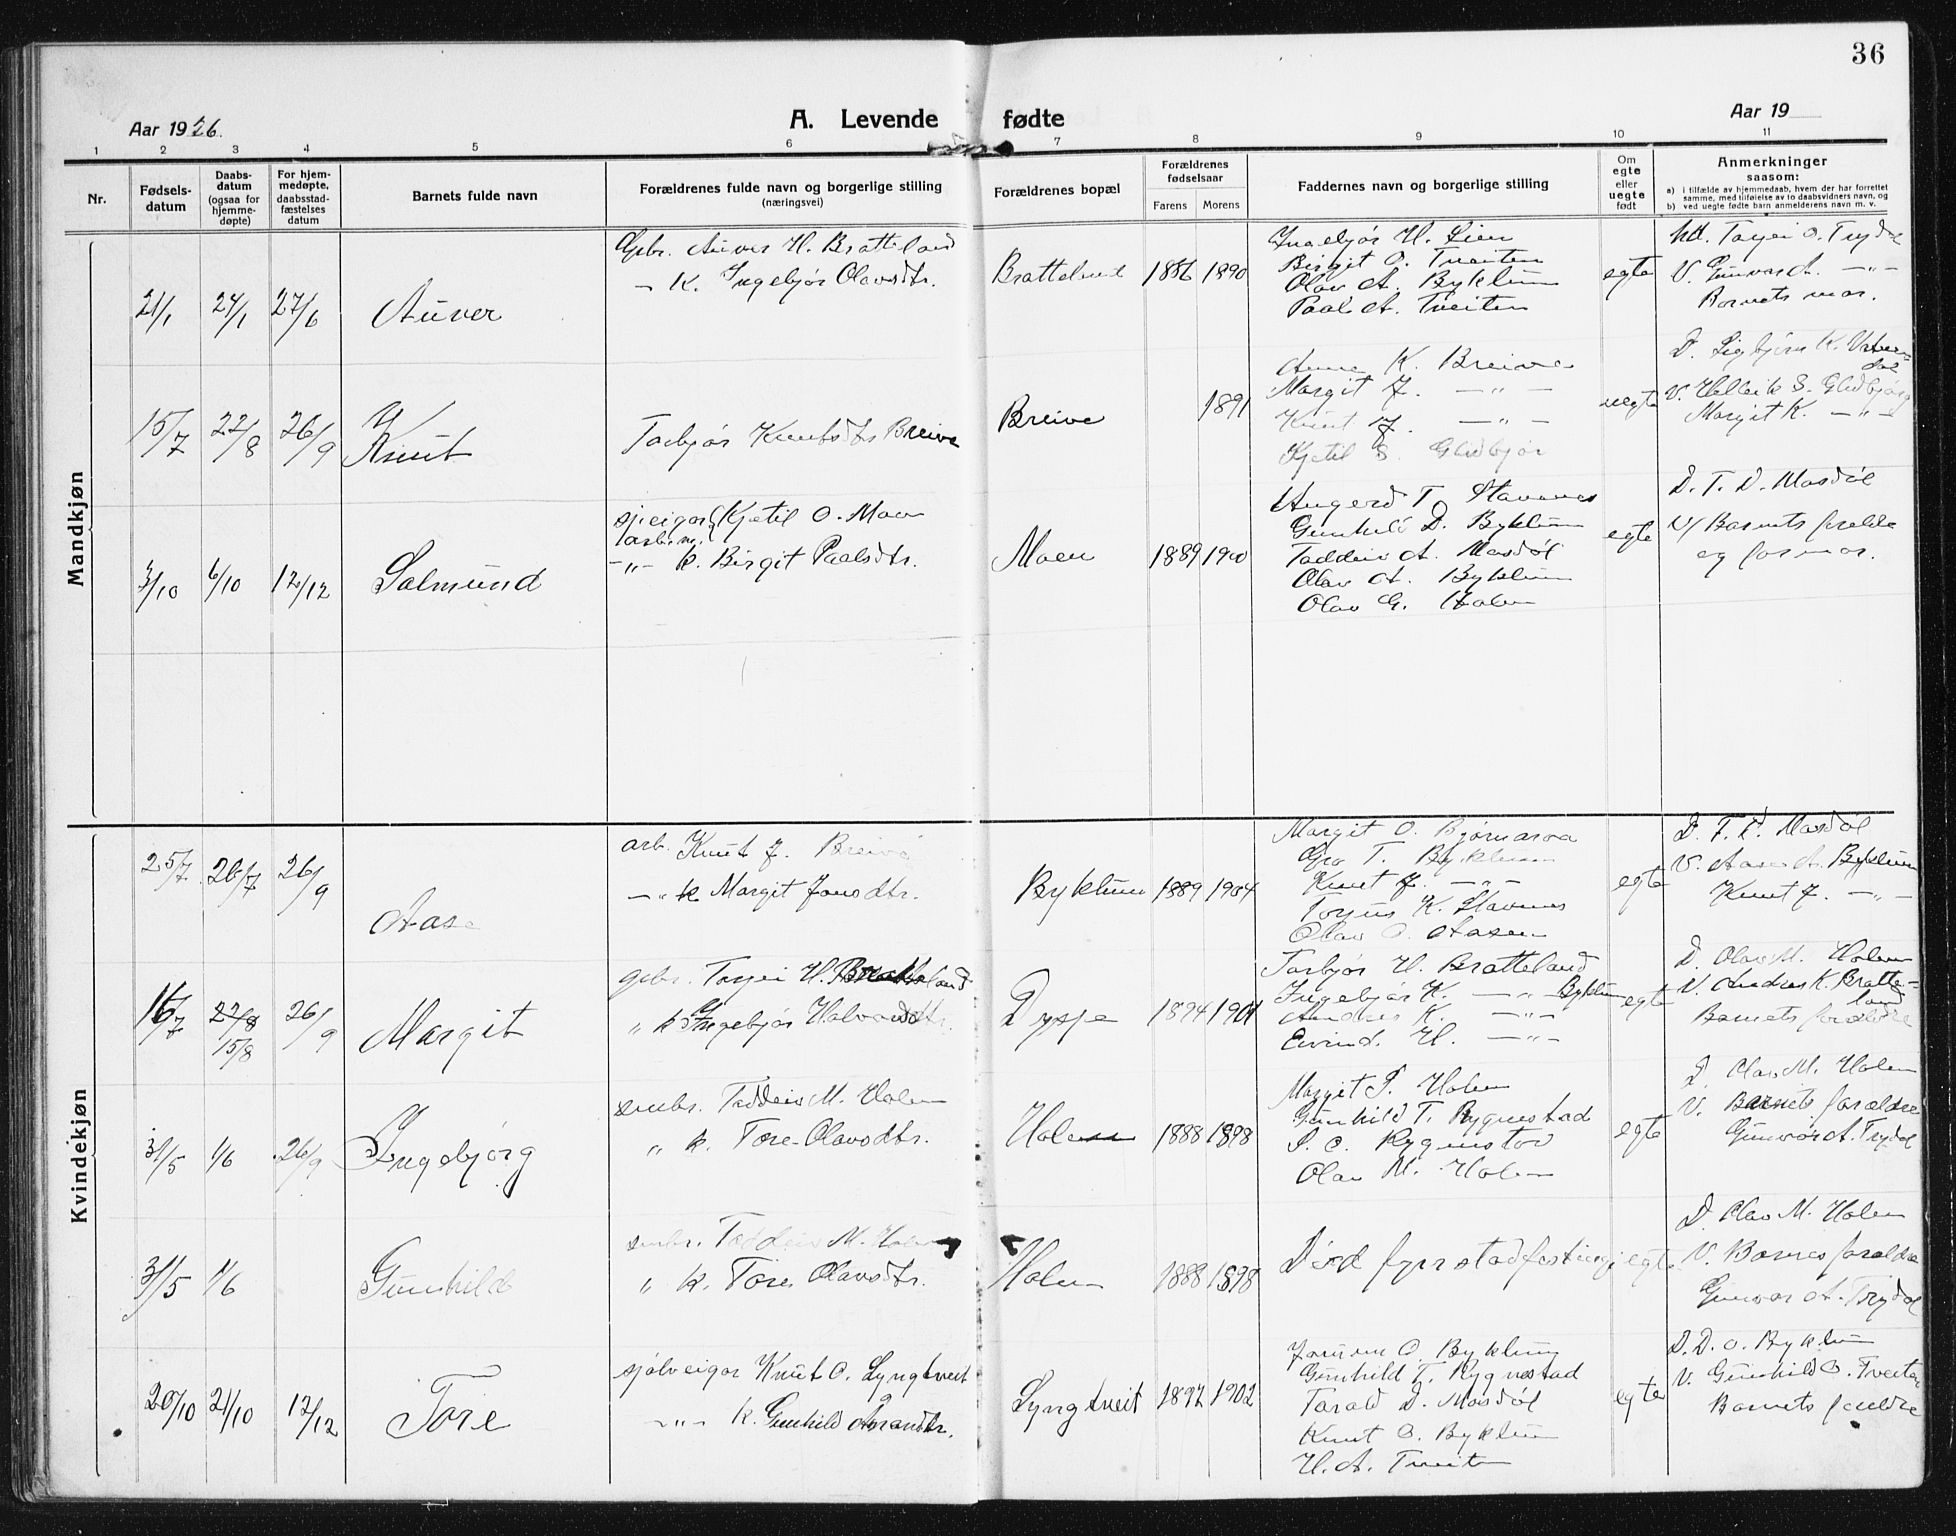 36
Aar 1926.
A. Levende fødte
Aar 19
1 2 3 4 5 6 7 8 9 10 11
Nr.
Fødsels-
datum
Daabs-
datum
(ogsaa for
hjemme-
døpte)
For hjem-
medøpte,
daabsstad-
fæstelses
datum
Barnets fulde navn
Forældrenes fulde navn og borgerlige stilling
(næringsvei)
Forældrenes bopæl
Forældrenes
fødselsaar
Farens Morens
Faddernes navn og borgerlige stilling
Om
egte
eller
uegte
født
Anmerkninger
saasom:
a) i tilfælde av hjemmedaab, hvem der har forrettet
samme, med tilføielse av to daabsvidners navn, og
b) ved uegte fødte barn anmelderens navn m. v.
Mandkjøn
21/1 24/1 27/6 Auver
Gbr. Auver H. Bratteland
k. Ingebjør Olavsdtr.
Bratteland 1886 1890
Ingebjør H. Lien
Birgit O. Tveiten
Olav A. Byklum
Paal A. Tveiten
egte
Torjei O. Trydal
V. Gunvor A. -"-
Barnets mor.
15/7 22/8 26/9 Knut
Torbjør Knutsdtr Breive
Breive 1891
Anne K. Breive
Margit J. -"-
Knut J. -"-
Kjetil S. Glidbjør
uegte
D. Sigbjørn K. Vatnedal
V. Hellik S. Glidbjørg
Margit K. -"-
3/10 6/10 12/12 Salmund
sjleigar Kjetil O. Moen
-"- k. Birgit Paalsdtr.
Moen 1889 1900
Angerd T. Stavenes
Gunhild D. Byklum
Taddeiv A. Mosdøl
Olav A. Byklum
Olav G. Holen
egte
D. T. D. Mosdøl
V. Barnets forelde
og farmor.
Kvindekjøn
25/7 26/7 26/9 Aase
arb. Knut J. Breive
-"- k. Margit Jonsdtr.
Byklum 1889 1904
Margit O. Bjørnaraa
Gro T. Byklum
Knut J. -"-
Torjus K. Stavenes
Olav O. Aasen
egte
D. T. D. Mosdøl
V. Aase A. Byklum
Knut J. -"-
16/7 22/8 26/9 Margit
15/8
gbr. Torjei H. Bratteland
" k. Ingebjør Halvardsdtr.
Dysje 1894 1901
Torbjør H. Bratteland
Ingebjør K. -"- Byklum
Andres K. -"-
Eivind H. -"-
egte
D. Olav M. Holen
V. Andres K. Bratteland
Barnets foreldre
31/5 1/6 26/9 Ingebjørg
smbr. Taddeiv M. Holen
" k. Tore Olavsdtr.
Holen 1888 1898
Margit P. Holen
Gunhild T. Rygnestad
Olav M. Holen
egte
D. Olav M. Holen
V. Barnets foreldre
Gunvor A. Trydal
31/5 1/6 Gunhild
smbr. Taddeiv M. Holen
" k. Tore Olavsdtr.
Holen 1888 1898
Død fyrr stadfestingi
egte
D. Olav M. Holen
V. Barnes foreldre
Gunvor A. Trydal
20/10 21/10 12/12 Tore
sjølveigar Knut O. Lyngtveit
-"- k. Gunhild
Lyngtveit 1897 1902
Jorunn O. Byklum
Gunhild T. Rygnestad
Tarald D. Mosdøl
Knut O. Byklum
H. A. Tveiten
egte
D. D. O. Byklum
V. Gunhild O. Tveiten
Barnets foreldre